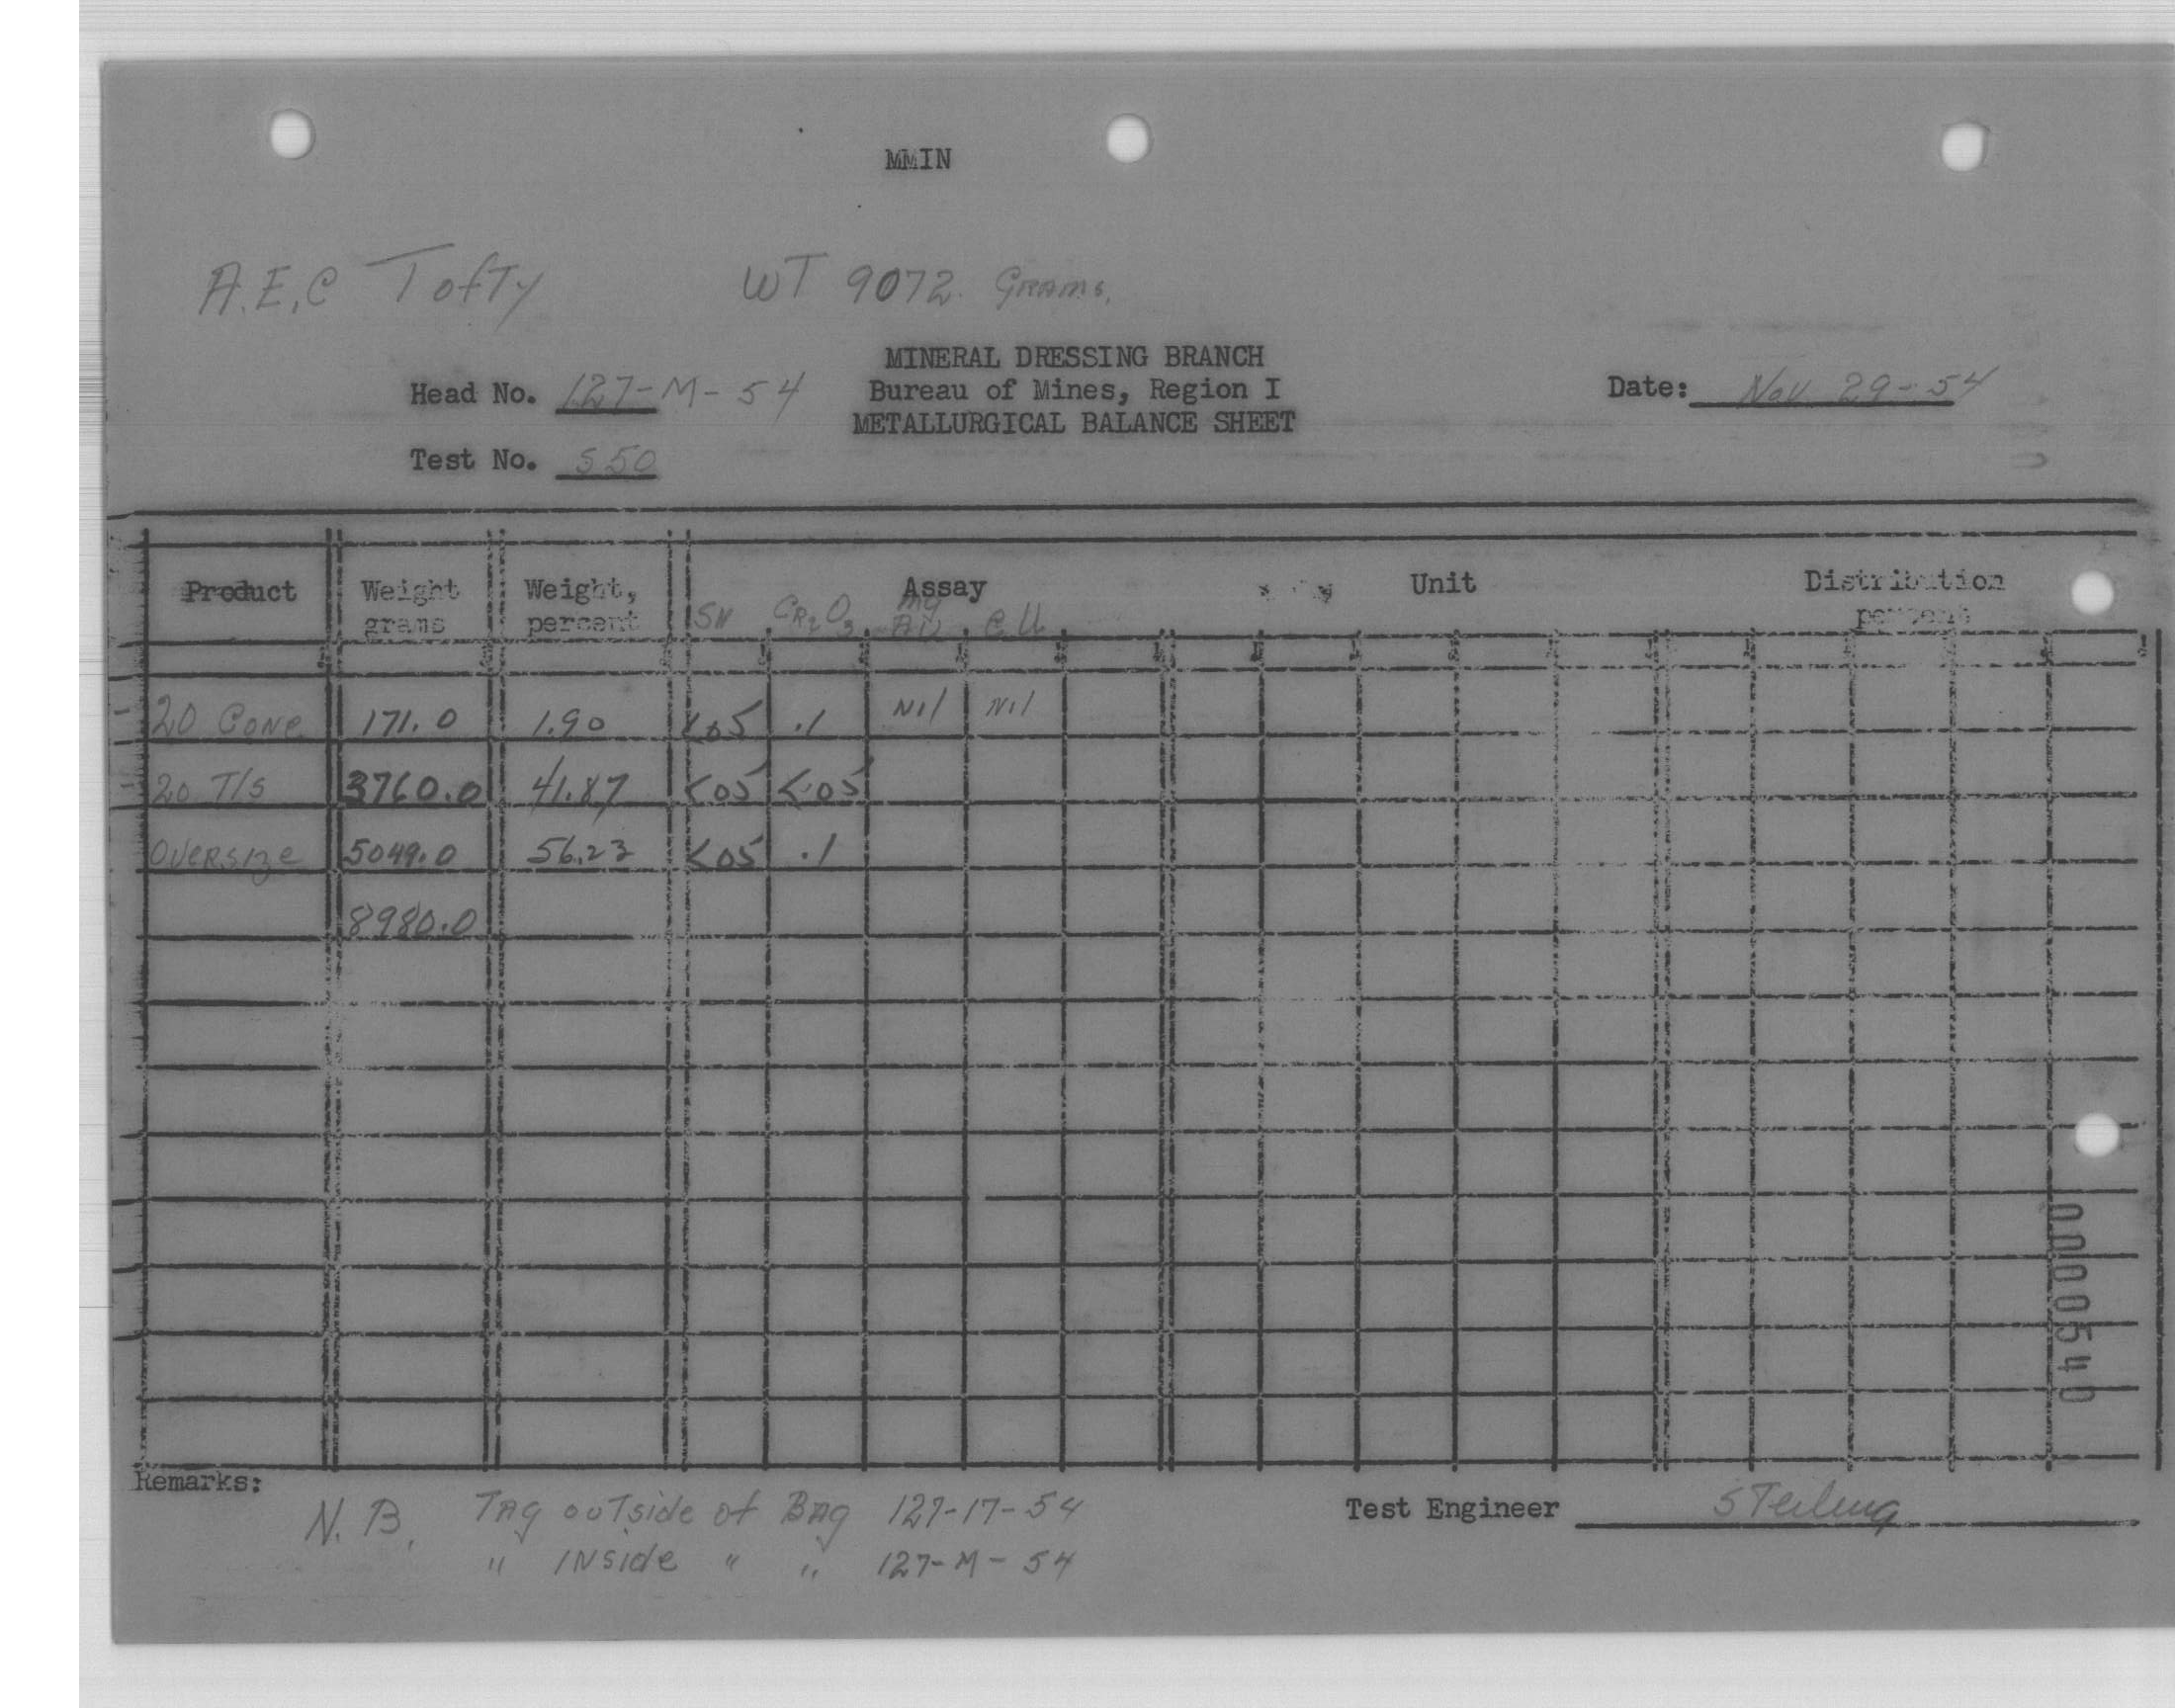 MMIN
A.E.C Tofty WT 9072. Grams.
MINERAL DRESSING BRANCH
Head No. 127-M-54 Bureau of Mines, Region I Date: Nov. 29-54
METALLURGICAL BALANCE SHEET
Test No. S50
Product Weight grams Weight, percent Assay Unit Distribution percent
SN CR2O3 mg AU e U
20 Conc 171.0 1.90 <05 .1 Nil Nil
20 T/s 3760.0 41.87 <05 <.05
Oversize 5049.0 56.23 <05 .1
8980.0
0000540
Remarks:
N.B. Tag outside of Bag 127-17-54
" Inside " " 127-M-54
Test Engineer